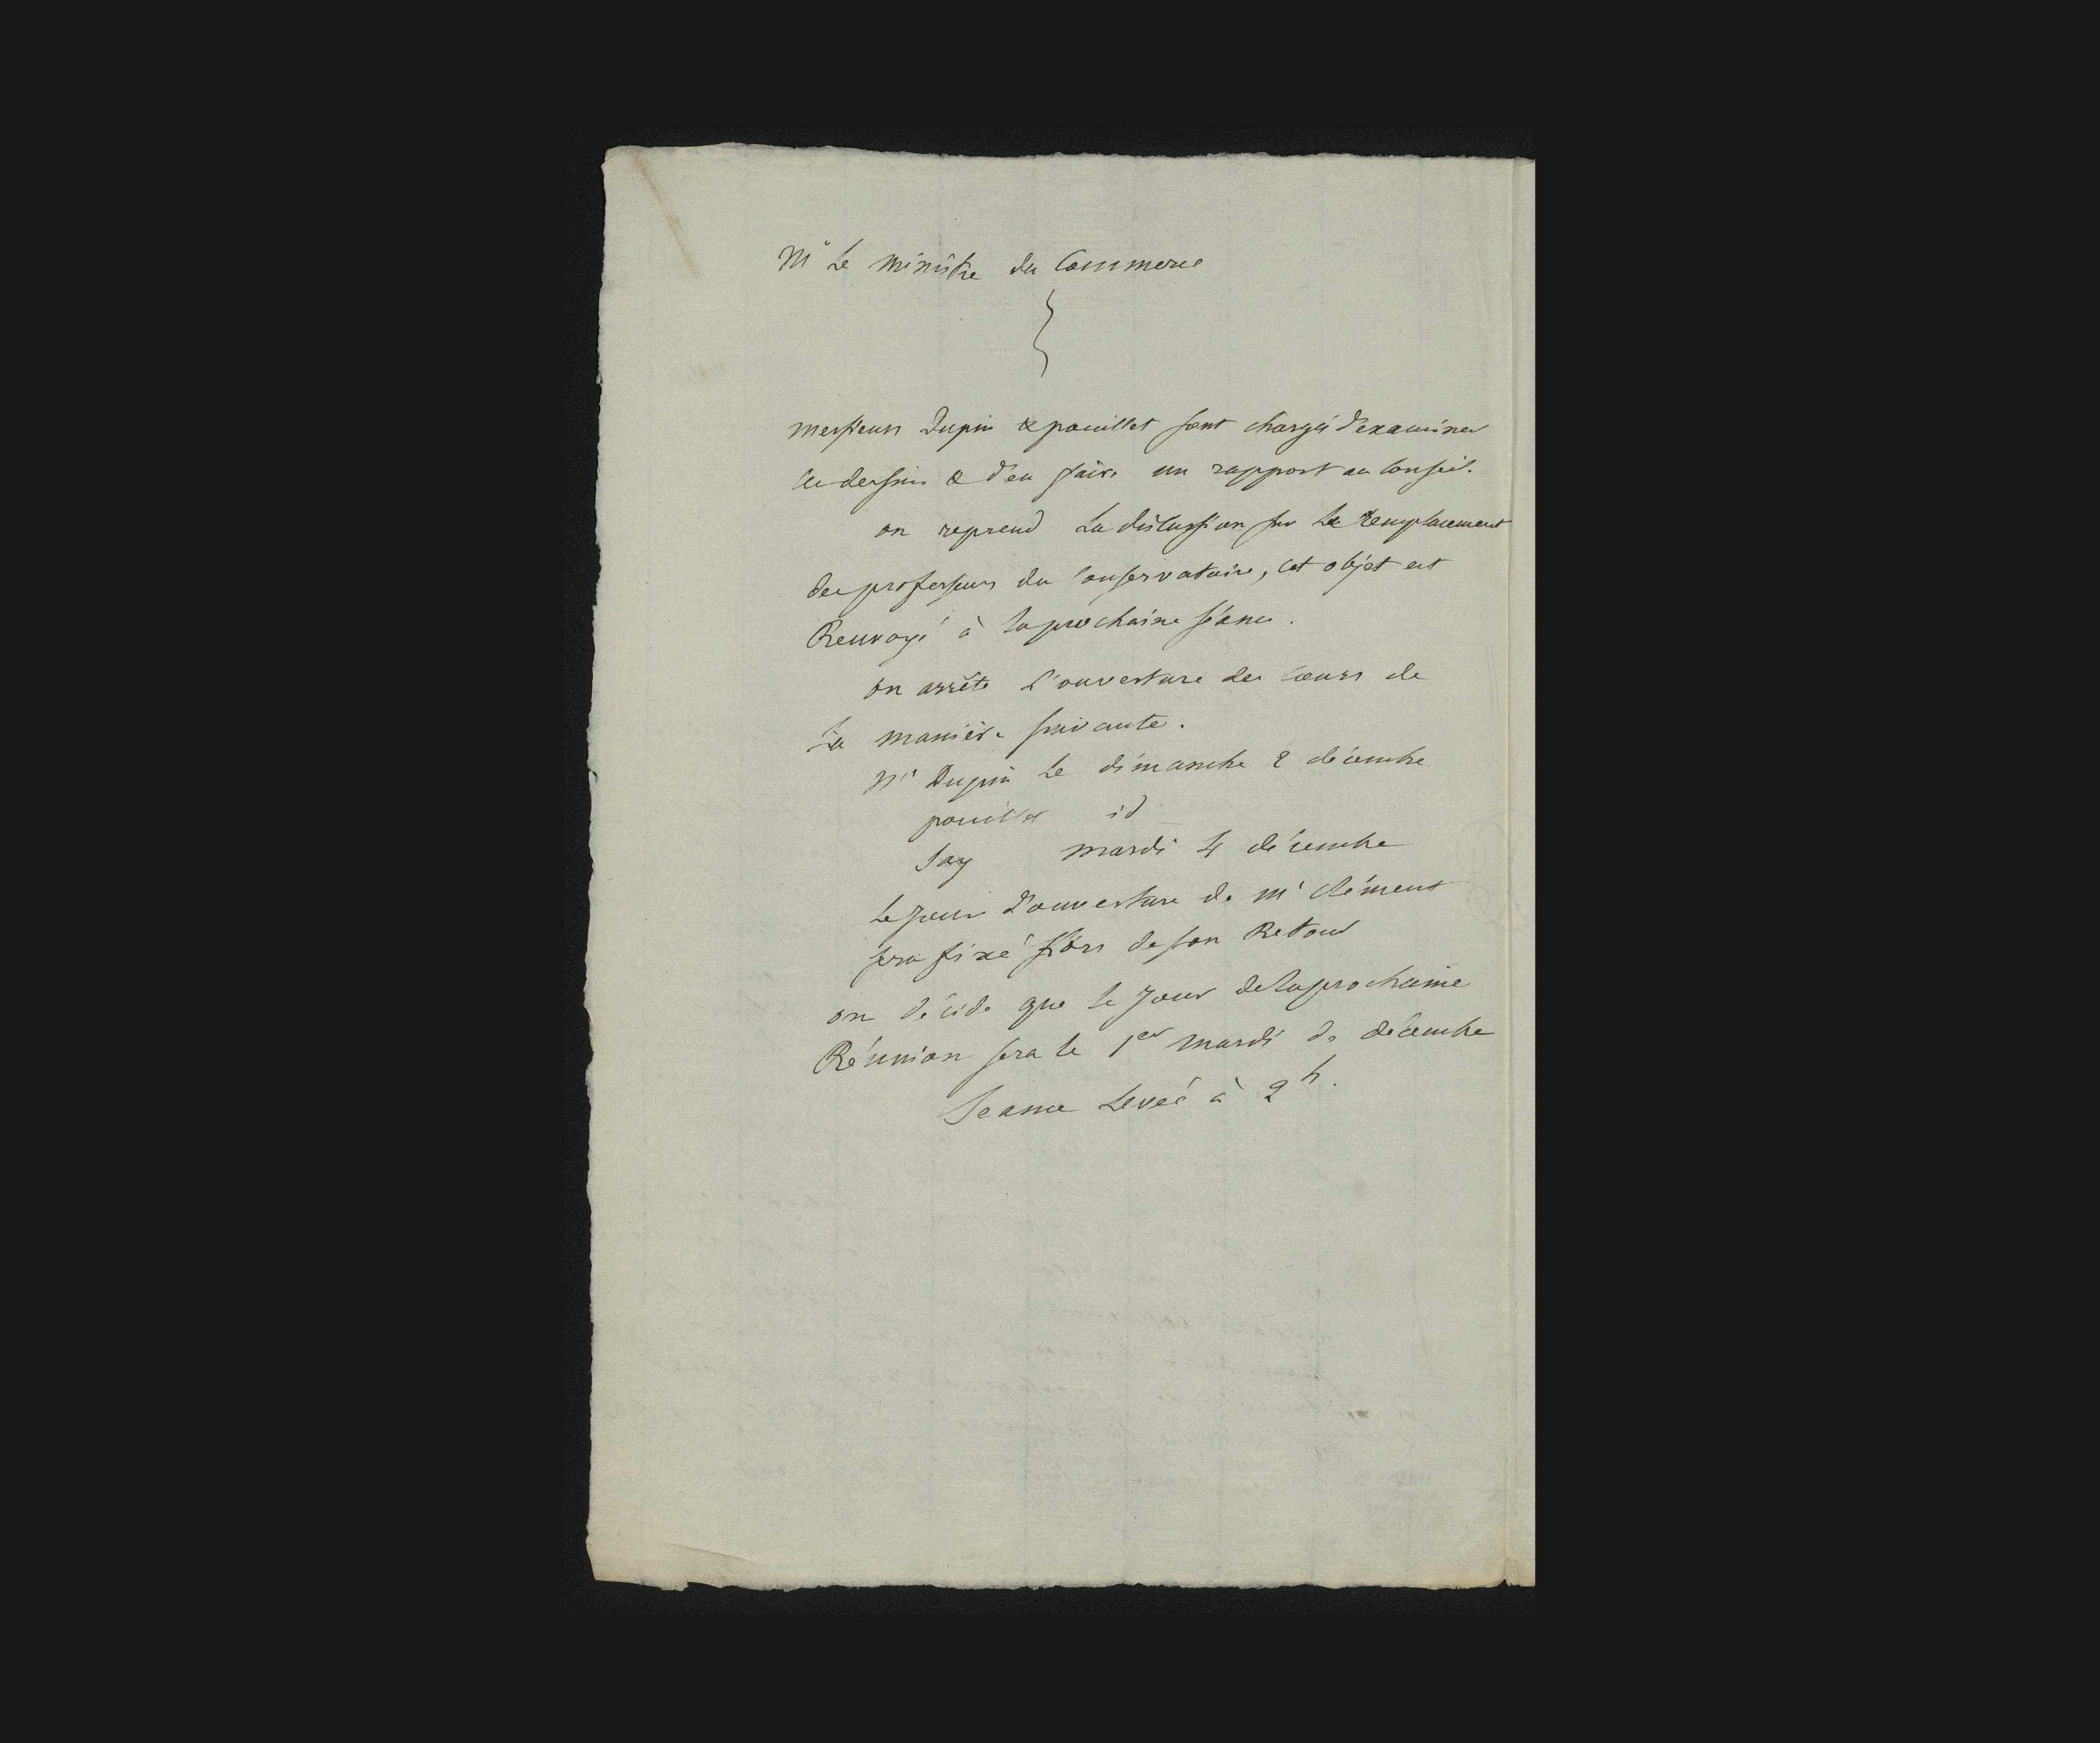 Mr Le ministre du Commerce
messieurs Dupin & pouillet sont chargés d'examiner
les dessins & d'en faire un rapport au Conseil.
on reprend La discussion sur Le remplacement
des professeurs du Conservatoire, cet objet est
Renvoyé à la prochaine séance.
on arrête L'ouverture des Cours de
La manière suivante.
Mr Dupin Le dimanche 2 décembre
pouillet id
Say mardi 4 décembre
Le jour d'ouverture de Mr Clément
sera fixé Lors de son Retour
on décide que le Jour de la prochaine
Réunion sera le 1er mardi de décembre
Seance Levée à 2h.